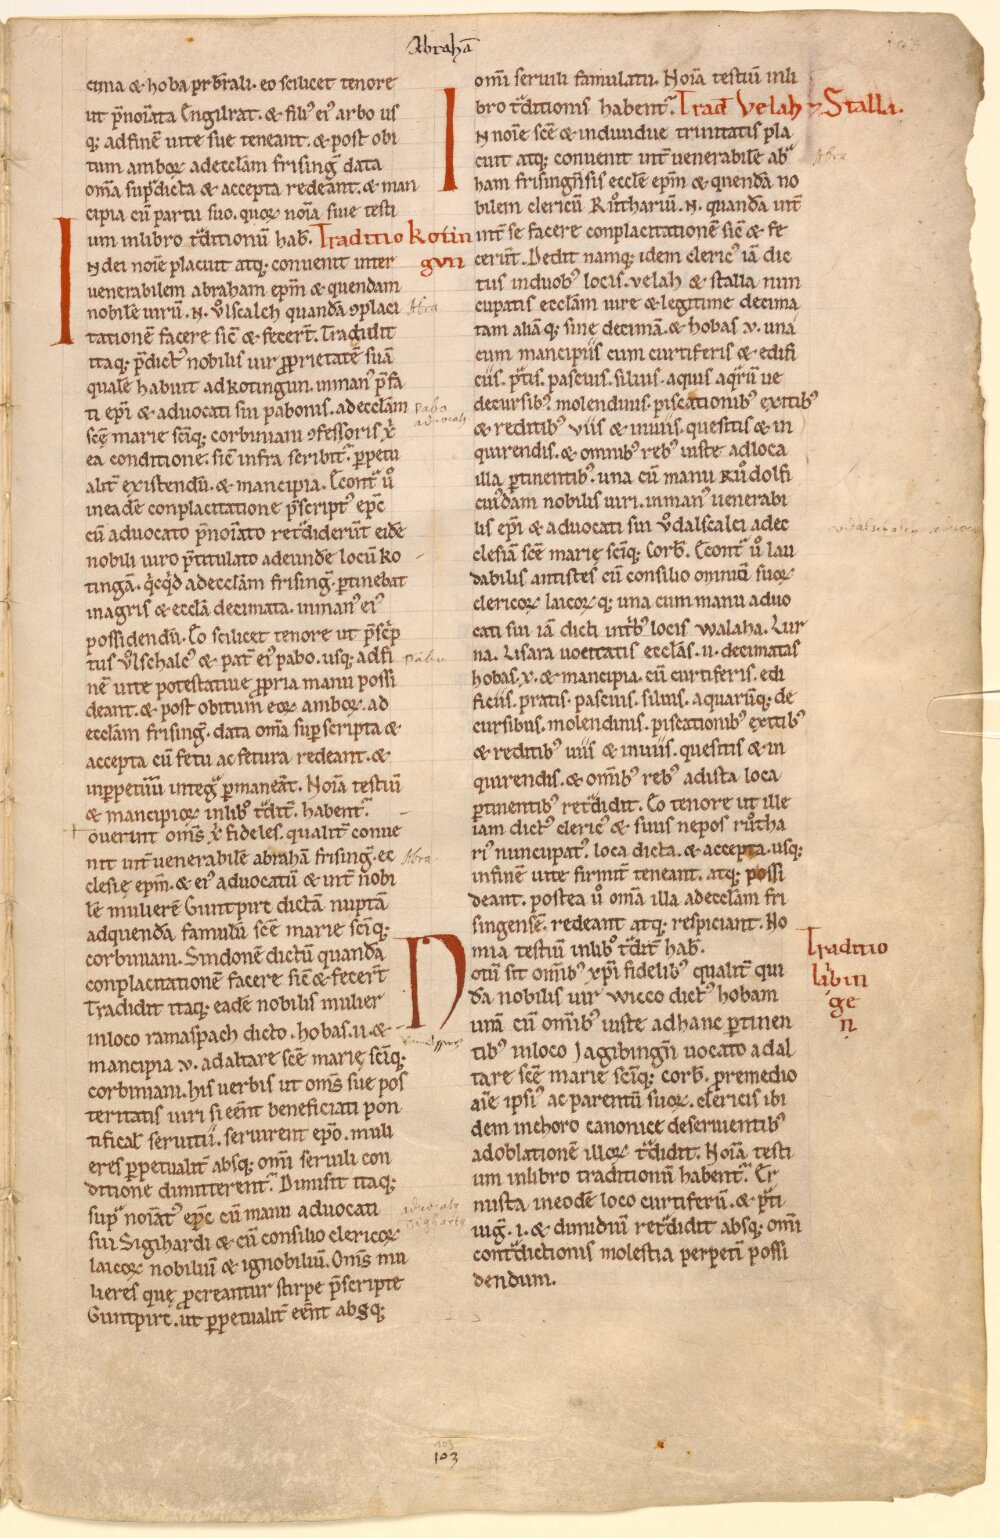 Abrahā
cima & hoba prb̄rali. eo scilicet tenore
ut p̄noīata Engilrat. & filiꝰ eiꝰ arbo us
q; adfinē uite sue teneant. & post obi
tum amboꝝ adecclām frising̅ data
om̄a sup̄dicta & accepta redeant. & man
cipia cū partu suo. quoꝝ noīa siue testi
um inlibro t̄ditionū hab̄. Traditio Kotin
gvn
IN dei noīe placuit atq; conuenit inter
uenerabilem abraham ep̄m & quendam
nobilē uirū .N. Vͦlscalch quandā ꝯplaci
tationē facere sic̄ & fecer̄t. Tradidit
itaq; p̄dictꝰ nobilis uir ꝓprietatē suā
qualē habuit ad kotingun. inmanꝰ p̄fa
ti ep̄i & aduocati sui pabonis. adecclām
scę̄ marie sc̄iq; corbiniani ꝯfessoris x̄p̄
ea conditione. sic̄ infra scribit̄. ꝑpetu
alit̄ existendū. & mancipia. Econt̄ uͦ
ineadē conplacitatione p̄scriptꝰ ep̄c
cū aduocato p̄noīato ret̄diderūt eidē
nobili uiro p̄titulato adeundē locū ko
tingā. q̇cq̇d adecclām frising̅. ꝑtinebat
inagris & ecclā decimata. inmanꝰ eiꝰ
possidendū. Eo scilicet tenore ut p̄scrip
tus Vͦlschalcꝰ & pat̄ eiꝰ pabo. usq; adfi
nē uite potestatiue ꝓpria manu possi
deant. & post obitum eoꝝ amboꝝ. ad
ecclām frising̅. data om̄a sup̄scripta &
accepta cū fetu ac fetura redeant. &
inꝑpetuū inteḡ ꝑmaneāt. Noīa testiū
& mancipioꝝ inlibꝰ t̄dit̄. habent̄.
ouerint om̄s x̄p̄ fideles. qualit̄ conue
nit int̄ uenerabilē abrahā frising̅. ec
clesię ep̄m. & eiꝰ aduocatū & int̄ nobi
lē mulierē Guntpirc dictā nuptā
adquendā famulū scē marie sc̄iq;
corbiniani. Sindonē dictū quandā
conplacitationē facere sic̄ & fecer̄t
Tradidit itaq; eadē nobilis mulier
inloco ramaspach dicto. hobas .ii. &
mancipia .v. adaltare scē marię sc̄iq;
corbiniani. his uerbis ut om̄s sue pos
teritatis uiri si eēnt beneficiati pon
tifical̄ seruitū. seruirent ep̄o. muli
eres ꝑpetualit̄ absq; om̄i seruili con
ditione dimitterent̄. Dimisit itaq;
sup̄ noīatꝰ ep̄c cū manu aduocati
sui Sigihardi & cū consilio clericoꝝ
laicoꝝ nobiliū & ignobiliū. Om̄s mu
lieres quę ꝓcreantur stirpe p̄scripte
Guntpirc. ut ꝑpetualit̄ eēnt absq;
om̄i seruili famulatu. Noīa testiū inli
bro t̄ditionis habent̄. Trad̄ Velah & Stalli.
IN noīe scē & indiuidue trinitatis pla
cuit atq; conuenit int̄ uenerabilē ab̄
ham frisingn̄sis ecclē ep̄m & quendā no
bilem clericū Ruͦthariū .N. quandā int̄
int̄ se facere conplacitationē sic̄ & fe
cerūt. Dedit namq; idem clericꝰ iā dic
tus induobꝰ locis. velah & stalla nun
cupatis ecclām iure & legitime decima
tam aliāq; sine decimā. & hobas .v. unā
cum mancipiis cum curtiferis & edifi
ciis. p̄tis. pascuis. siluis. aquis aqr̄ū ue
decursibꝰ. molendinis. piscationibꝰ exitibꝰ
& reditibꝰ viis & inuiis. quesitis & in
quirendis. & omnibꝰ rebꝰ iuste adloca
illa ꝑtinentibꝰ. una cū manu Ruͦdolfi
cuiꝰdam nobilis uiri. inmanꝰ uenerabi
lis ep̄i & aduocati sui Vͦdalscalci adec
clesiā scē marię sc̄iq; Corb̄. Econt̄ uͦ lau
dabilis antistes cū consilio omniū suoꝝ
clericoꝝ laicoꝝ q; una cum manu aduo
cati sui iā dicti int̄bꝰ locis walaha. Lur
na. Lisara uocitatis ecclās .ii. decimatas
hobas .x. & mancipia. cū curtiferis. edi
ficiis. pratis. pascuis. siluis. aquarūq; de
cursibus. molendinis. piscationibꝰ exitibꝰ
& reditibꝰ uiis & inuiis. quesitis & in
quirendis. & om̄ibꝰ rebꝰ adista loca
ꝑtinentibꝰ ret̄didit. Eo tenore ut ille
iam dictꝰ clericꝰ & suus nepos ruͦtha
riꝰ nuncupatꝰ. loca dicta. & accepta. usq;
infinē uite firmit̄ teneant. atq; possi
deant. postea uͦ om̄a illa adecclām fri
singensē. redeant atq; respiciant. No
mia testiū inlibꝰ t̄dit̄ hab̄.
Traditio
Iabin
ge
n
Notū sit om̄ibꝰ xp̄i fidelibꝰ qualit̄ qui
dā nobilis uir wicco dictꝰ hobam
unā cū om̄ibꝰ iuste adhanc ꝑtinen
tibꝰ inloco Jagibingn̄ uocato adal
tare scē marie sc̄iq; corb̄. ꝓremedio
aīe ipsiꝰ ac parentū suoꝝ. clericis ibi
dem inchoro canonice deseruientibꝰ
adoblationē illoꝝ t̄didit. Noīa testi
um inlibro traditionū habent̄. Er
nusta ineodē loco curtiferū. & p̄ti
iug̅. i. & dimidiū ret̄didit absq; om̄i
cont̄dictionis molestia perpeti possi
dendum.
Abra
pabo
aduocatꝰ
Pabo
Abra
Abra
103